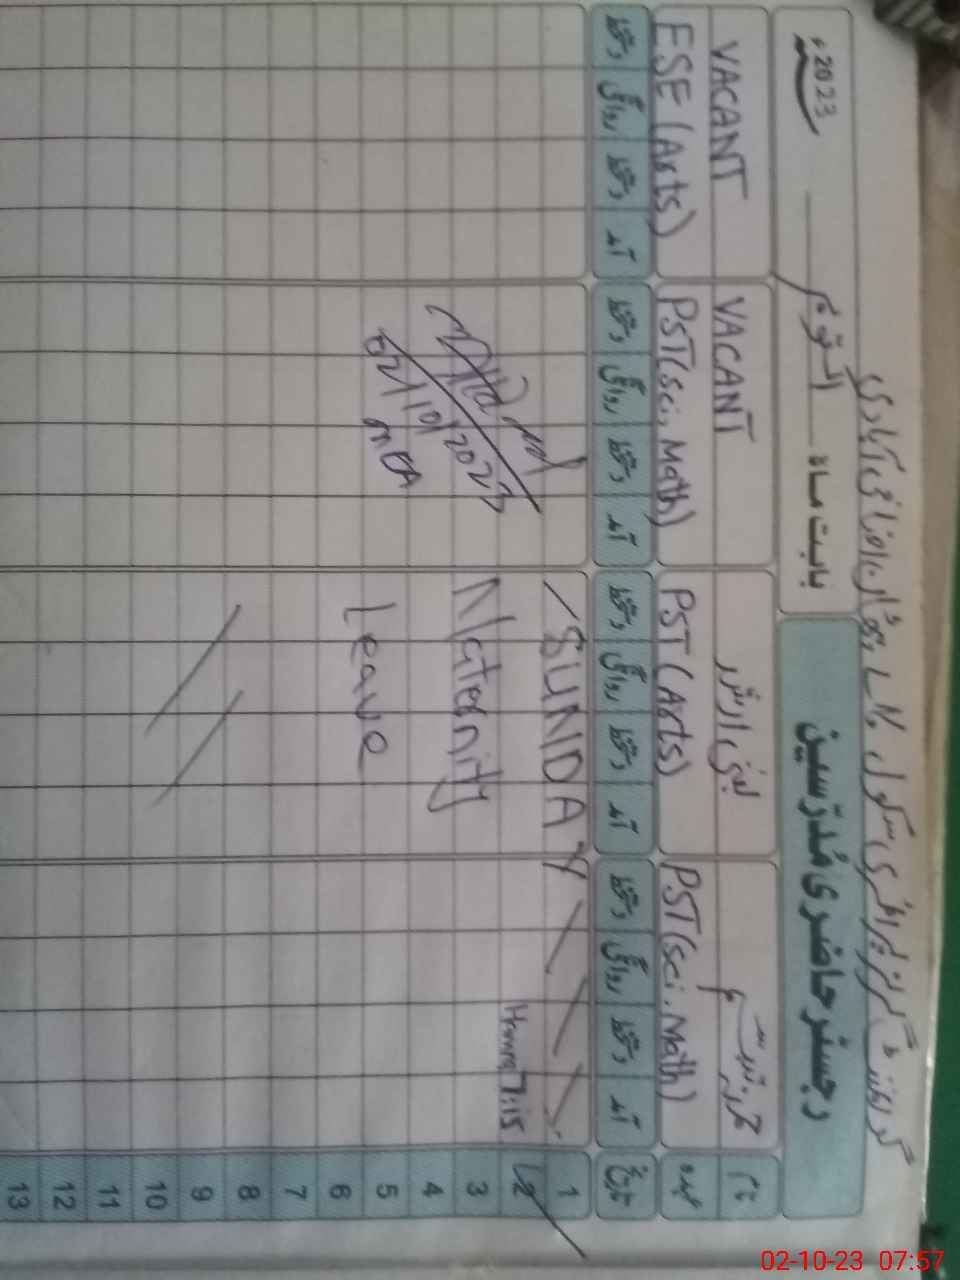 گورنمنٹ گرلز پرائمری سکول
رجسٹر حاضری مُدرّسین
بابت ماہ اکتوبر 2023ء
نام
VACANT
VACANT
عہدہ
PST(Sci. Math)
PST(Arts)
PST(Sci, Math)
ESE (Arts)
تاریخ
آمد دستخط روانگی دستخط
آمد دستخط روانگی دستخط
آمد دستخط روانگی دستخط
آمد دستخط روانگی دستخط
1
SUNDAY
2
7:15
3
Maternity
4
5
Leave
02/10/2023
MEA
6
7
8
9
10
11
12
13
02-10-23 07:57